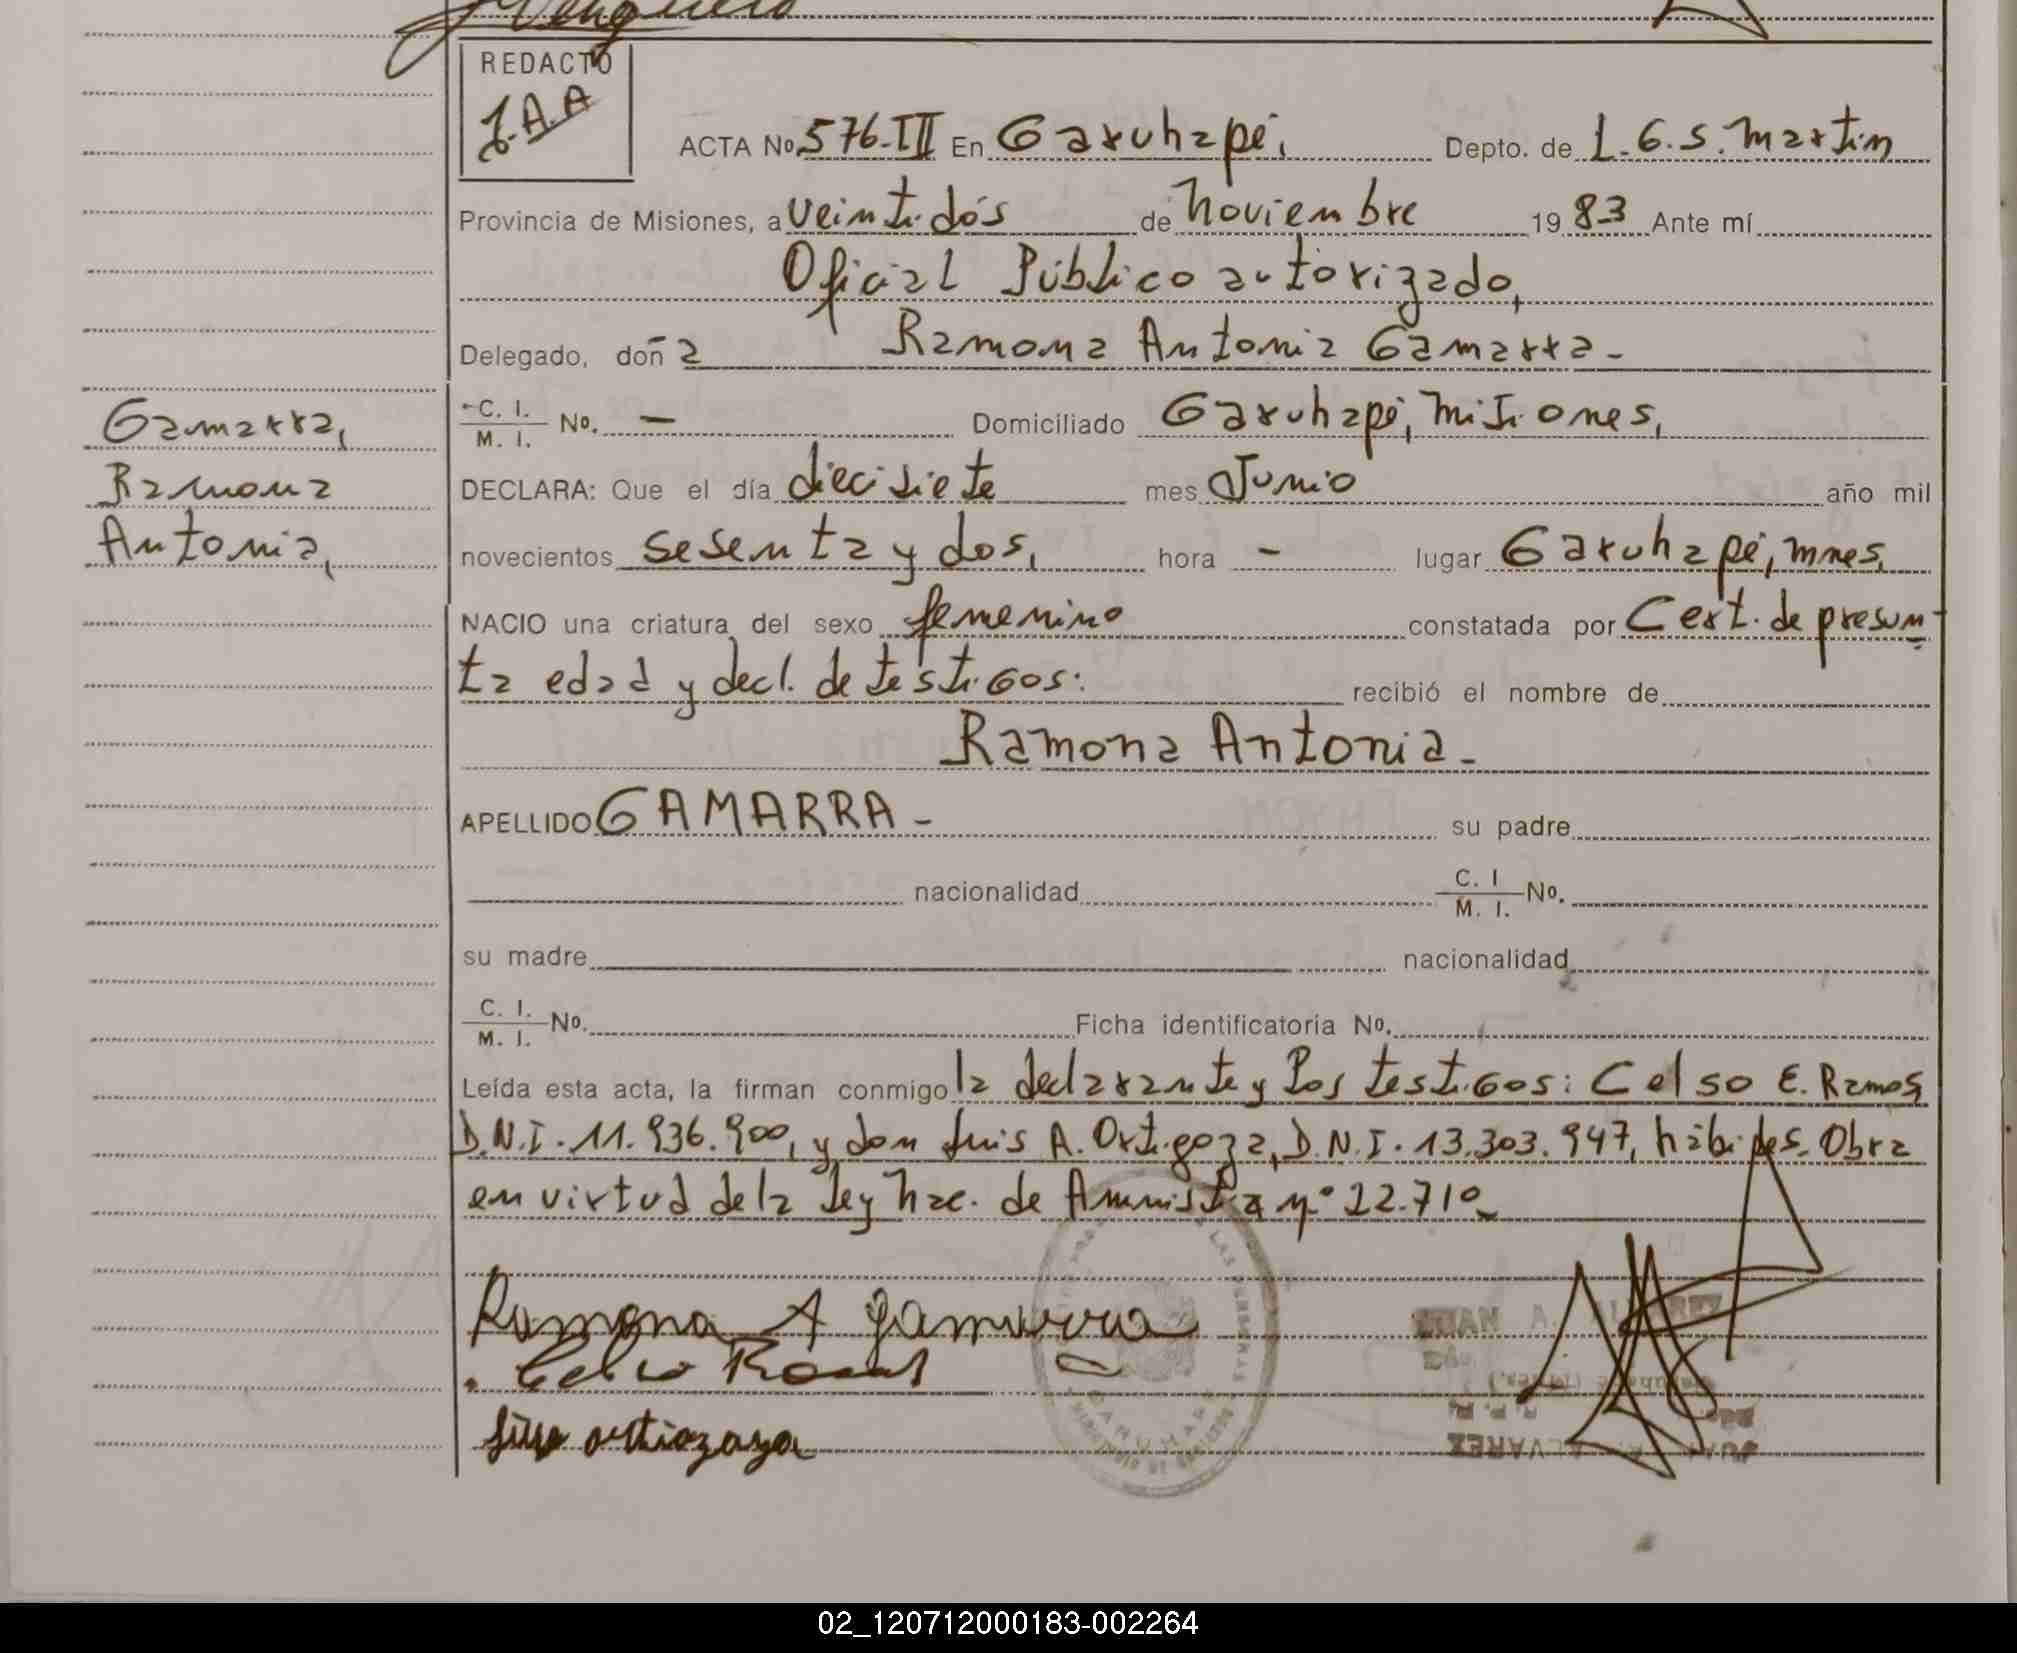 REDACTO
J.A.A
ACTA No. 576-III En Garuhapé, Depto. de L.G.S. Martín
Provincia de Misiones, a veintidós de Noviembre 19 83 Ante mí
Oficial Público autorizado,
Delegado, doña Ramona Antonia Gamarra-
Gamarra,
Ramona
Antonia,
C. I. M. I. No. - Domiciliado Garuhapé, Misiones,
DECLARA: Que el día diecisiete mes Junio año mil
novecientos sesenta y dos, hora - lugar Garuhapé, Mnes,
NACIO una criatura del sexo femenino constatada por Cert. de presun-
ta edad y decl. de testigos: recibió el nombre de
Ramona Antonia-
APELLIDO GAMARRA- su padre
nacionalidad C. I M. I. No.
su madre nacionalidad
C. I. M. I. No. Ficha identificatoria No.
Leída esta acta, la firman conmigo la declarante y los testigos: Celso E. Ramos,
D.N.I. 11.936.900, y don Luis A. Ortigoza, D.N.I. 13.303.947, hábiles. Obra
en virtud de la Ley Nac. de Amnistía nº 22.710-
Ramona A Gamarra
Celso Ramos
JUAN A. ALVAREZ
02_120712000183-002264